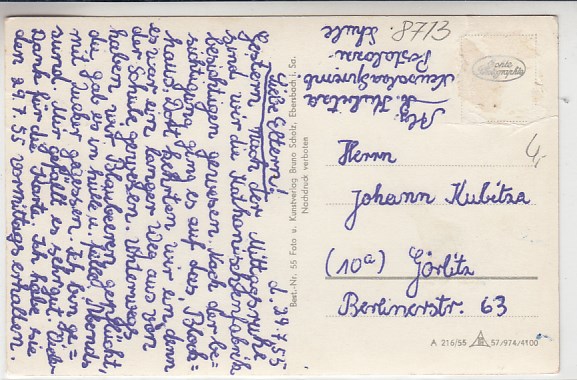 d. 29.7.55
Liebe Eltern!
Gestern nach der Mittagsruhe
sind wir die Kathonscheffenfabrik
besichtigen gewesen. Nach der be=
sichtigung ging es auf das Bloch=
haus. Dort kehrten wir ein denn
es war ein langer Weg aus von
der Schule gewesen. Unterwegs
haben wir Blaubeeren gepflückt,
die gab es in hülle u. fülle. Abends
mit Zucker gegessen. Ich bin ge=
sund. Mir gefällt es sehr gut. Vielen
Dank für die Karte. Ich habe sie
den 29.7.55 vormittags erhalten.
Best.-Nr. 55 Foto u. Kunstverlag Bruno Scholz, Ebersbach i. Sa.
Nachdruck verboten
8713
Abs.
Kubitza
Neusalza-Spremb
Pestalozzi-
Schule
4,-
Herrn
Johann Kubitza
(10a) Görlitz
Berlinerstr. 63
A 216/55 57/974/4100